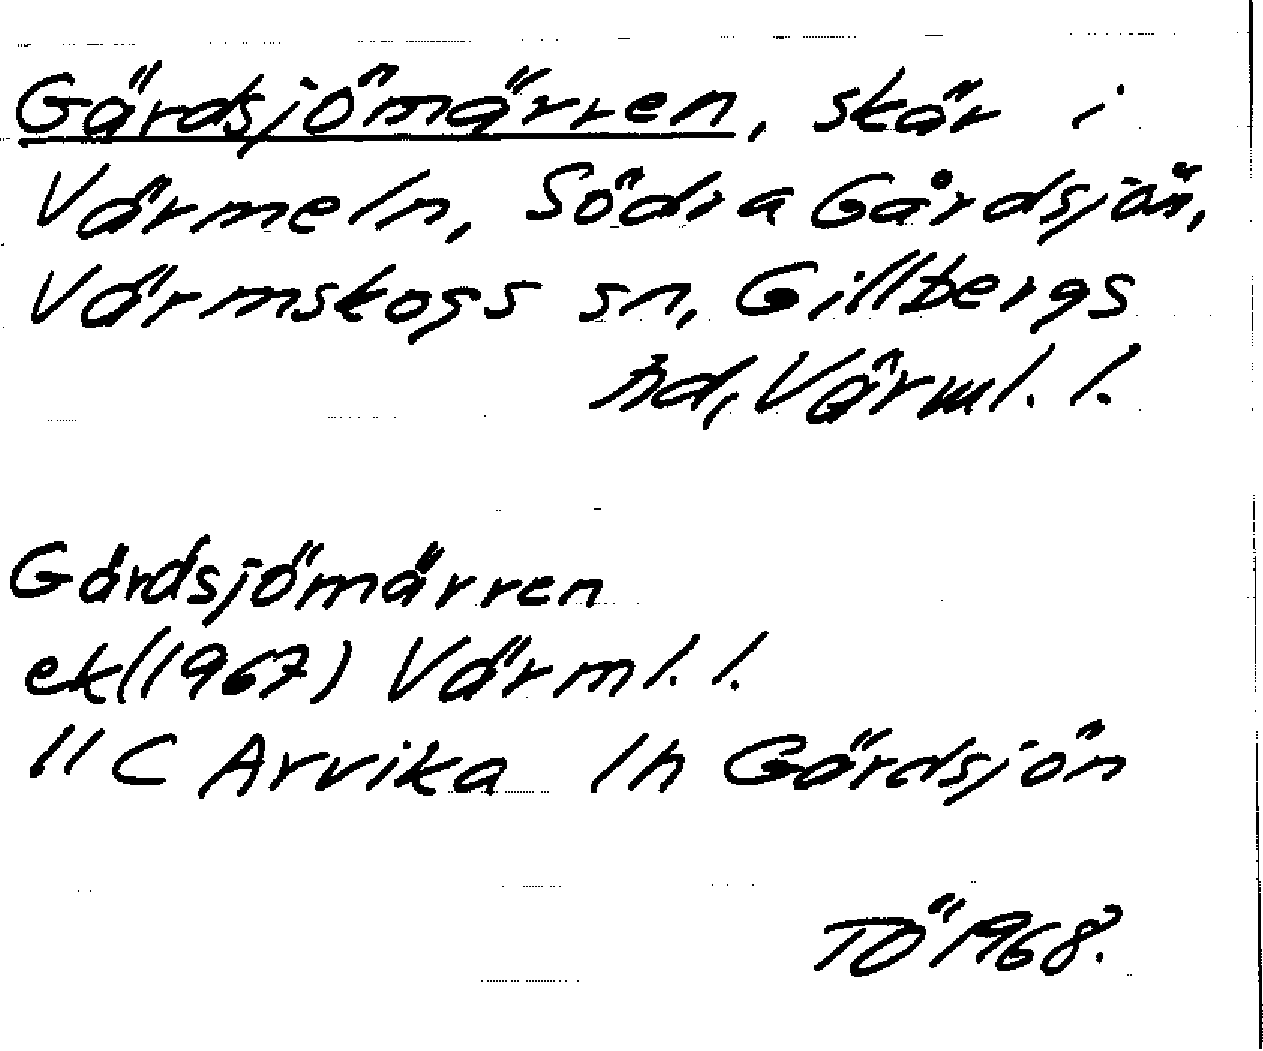 Gärdsjömärren, skär i
Värmeln, Södra Gårdsjön,
Värmskogs sn, Gillbergs
hd, Värml. l.
Gärdsjömärren
ek(1967) Värml. l.
11C Arvika 1h Gärdsjön
TÖ 1968.